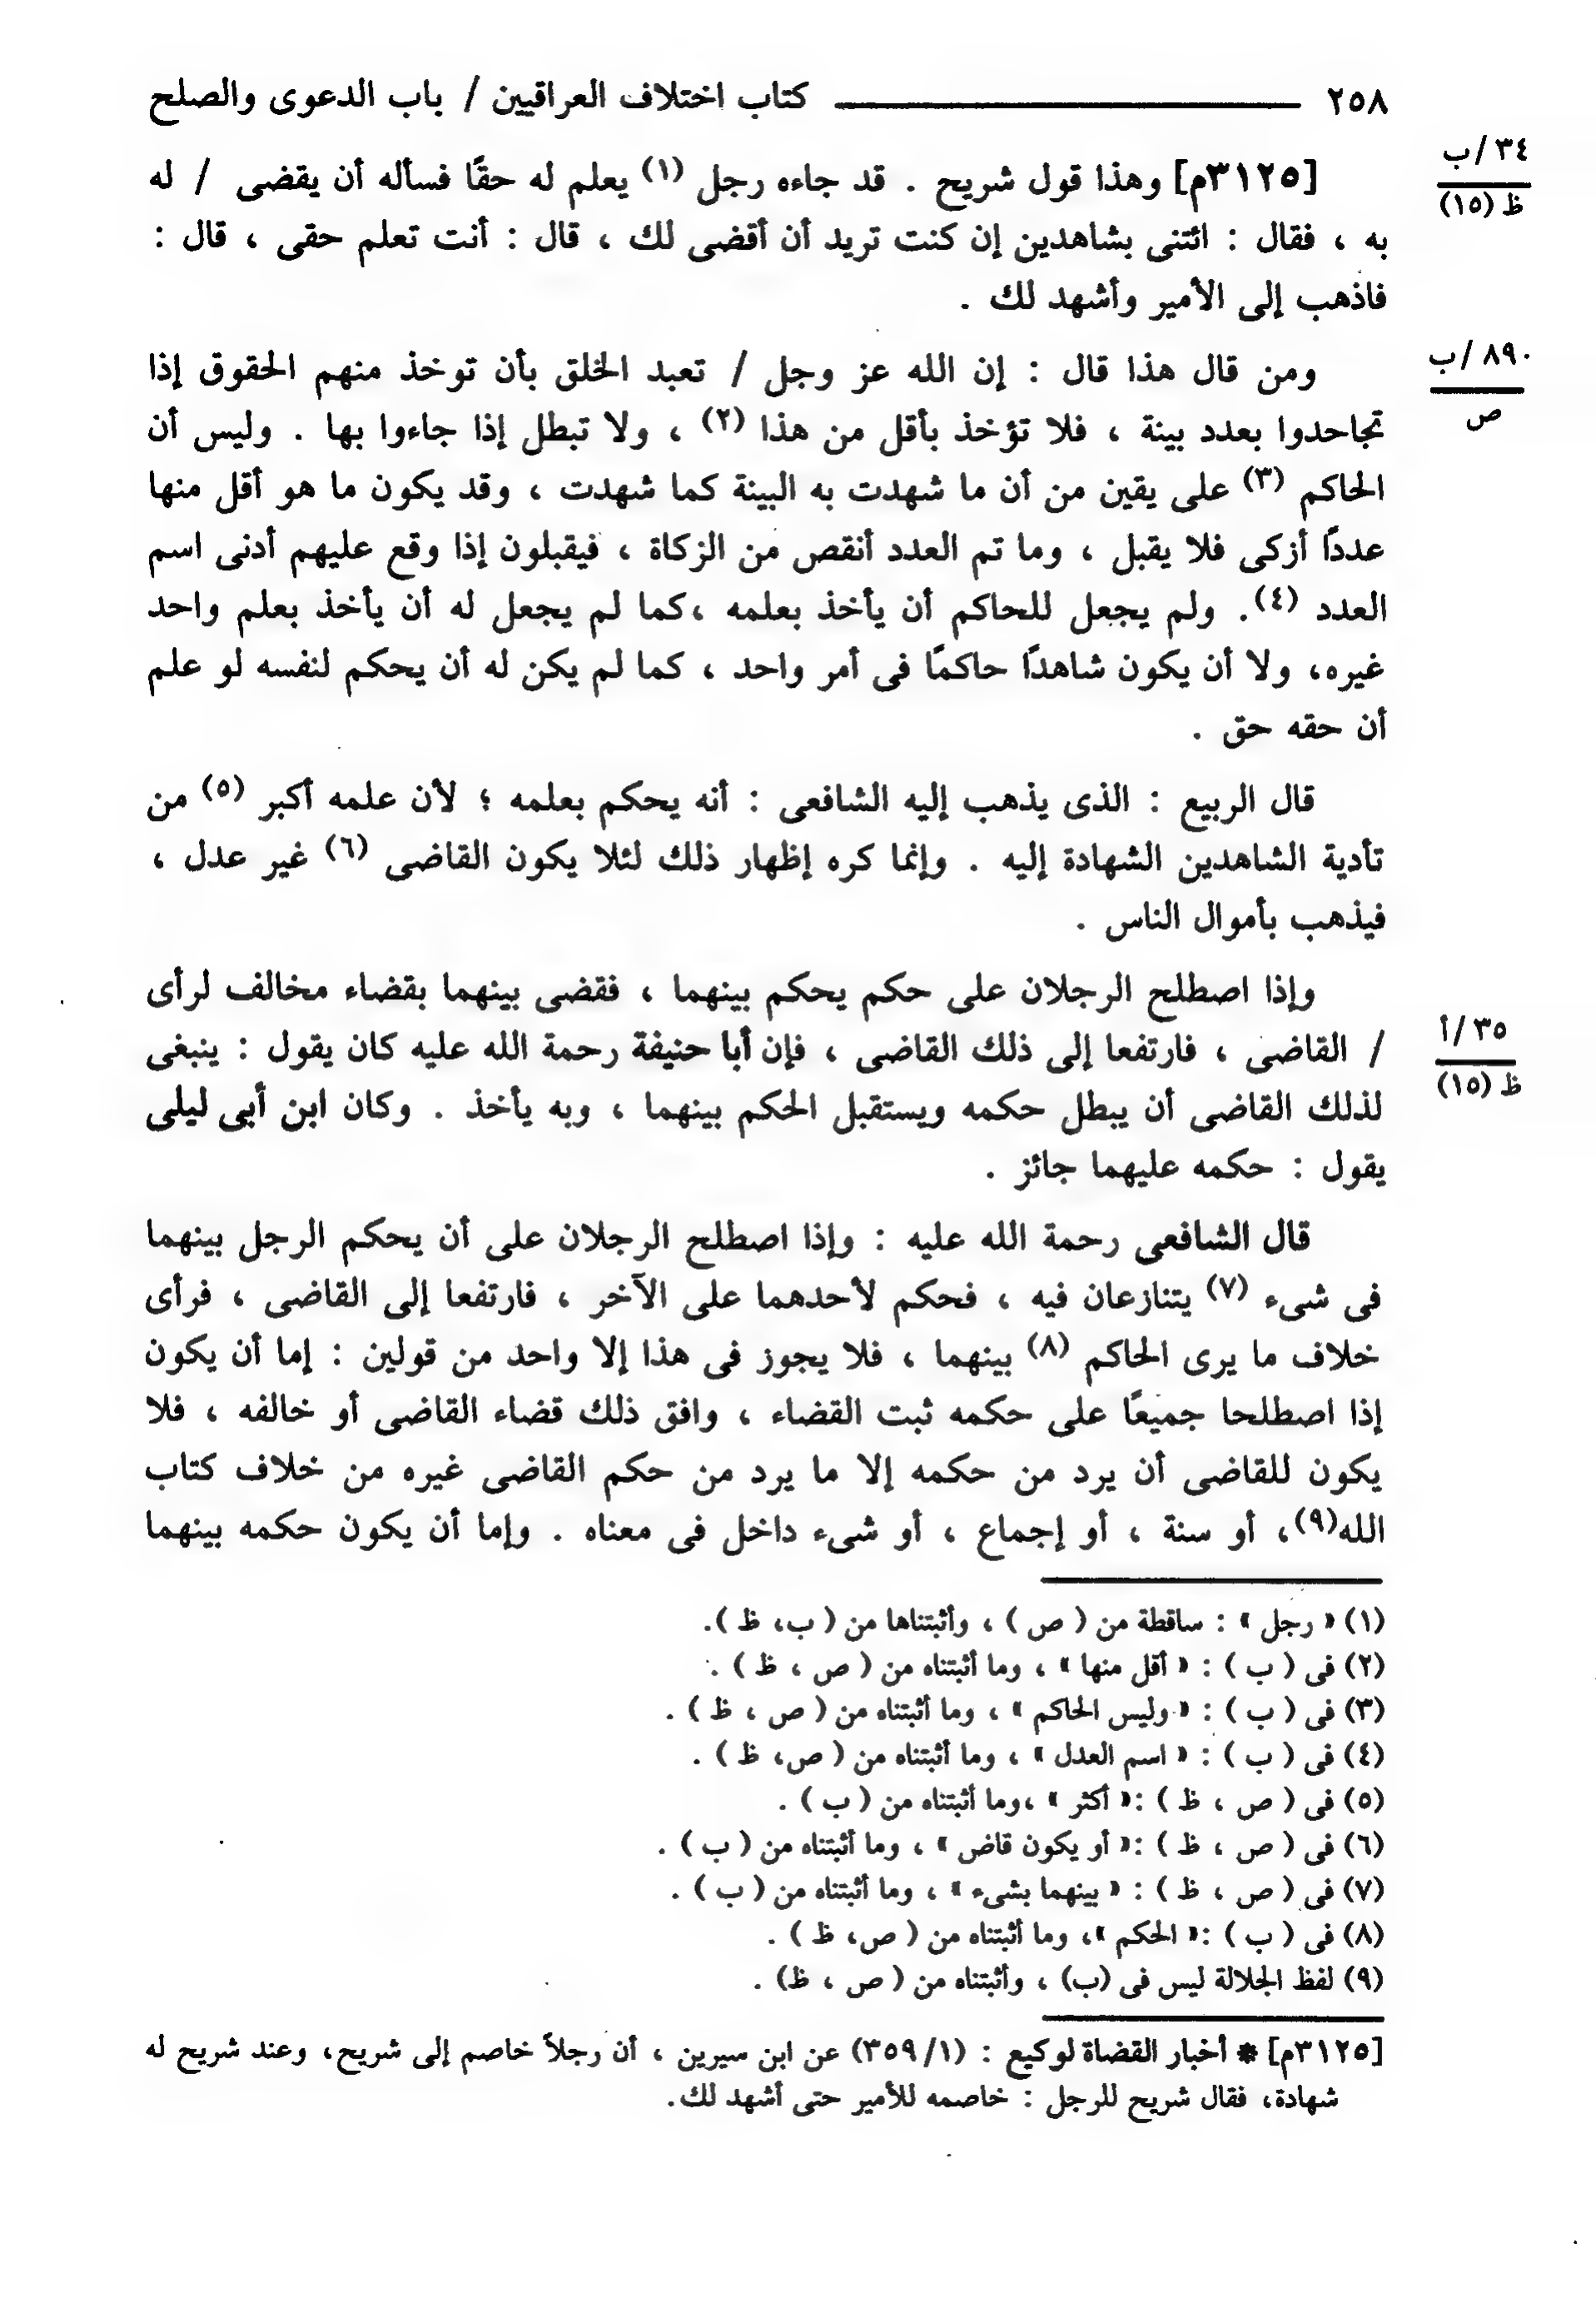 ٢٥٨ كتاب اختلاف العراقيين / باب الدعوى والصلح
٣٤/ب
ظ (١٥)
[٣١٢٥م] وهذا قول شريح . قد جاءه رجل (١) يعلم له حقًا فسأله أن يقضى / له
به ، فقال : ائتنى بشاهدين إن كنت تريد أن أقضى لك ، قال : أنت تعلم حقى ، قال :
فاذهب إلى الأمير وأشهد لك .
٨٩٠/ب
ص
ومن قال هذا قال : إن الله عز وجل / تعبد الخلق بأن توخذ منهم الحقوق إذا
تجاحدوا بعدد بينة ، فلا تؤخذ بأقل من هذا (٢) ، ولا تبطل إذا جاءوا بها . وليس أن
الحاكم (٣) على يقين من أن ما شهدت به البينة كما شهدت ، وقد يكون ما هو أقل منها
عددًا أزكى فلا يقبل ، وما تم العدد أنقص من الزكاة ، فيقبلون إذا وقع عليهم أدنى اسم
العدد (٤). ولم يجعل للحاكم أن يأخذ بعلمه ،كما لم يجعل له أن يأخذ بعلم واحد
غيره، ولا أن يكون شاهدًا حاكمًا فى أمر واحد ، كما لم يكن له أن يحكم لنفسه لو علم
أن حقه حق .
قال الربيع : الذى يذهب إليه الشافعى : أنه يحكم بعلمه ؛ لأن علمه أكبر (٥) من
تأدية الشاهدين الشهادة إليه . وإنما كره إظهار ذلك لئلا يكون القاضى (٦) غير عدل ،
فيذهب بأموال الناس .
وإذا اصطلح الرجلان على حكم يحكم بينهما ، فقضى بينهما بقضاء مخالف لرأى
٣٥/أ
ظ (١٥)
/ القاضى ، فارتفعا إلى ذلك القاضى ، فإن أبا حنيفة رحمة الله عليه كان يقول : ينبغى
لذلك القاضى أن يبطل حكمه ويستقبل الحكم بينهما ، وبه يأخذ . وكان ابن أبى ليلى
يقول : حكمه عليهما جائز .
قال الشافعى رحمة الله عليه : وإذا اصطلح الرجلان على أن يحكم الرجل بينهما
فى شىء (٧) يتنازعان فيه ، فحكم لأحدهما على الآخر ، فارتفعا إلى القاضى ، فرأى
خلاف ما يرى الحاكم (٨) بينهما ، فلا يجوز فى هذا إلا واحد من قولين : إما أن يكون
إذا اصطلحا جميعًا على حكمه ثبت القضاء ، وافق ذلك قضاء القاضى أو خالفه ، فلا
يكون للقاضى أن يرد من حكمه إلا ما يرد من حكم القاضى غيره من خلاف كتاب
الله(٩)، أو سنة ، أو إجماع ، أو شىء داخل فى معناه . وإما أن يكون حكمه بينهما
(١) « رجل » : ساقطة من ( ص ) ، وأثبتناها من ( ب، ظ ).
(٢) فى ( ب ) : « أقل منها » ، وما أثبتناه من ( ص ، ظ ) .
(٣) فى ( ب ) : « وليس الحاكم » ، وما أثبتناه من ( ص ، ظ ) .
(٤) فى ( ب ) : « اسم العدل » ، وما أثبتناه من ( ص، ظ ) .
(٥) فى ( ص ، ظ ) :« أكثر » ،وما أثبتناه من ( ب ) .
(٦) فى ( ص ، ظ ) :« أو يكون قاض » ، وما أثبتناه من ( ب ) .
(٧) فى ( ص ، ظ ) : « بينهما بشىء » ، وما أثبتناه من ( ب ) .
(٨) فى ( ب ) :« الحكم »، وما أثبتناه من ( ص، ظ ) .
(٩) لفظ الجلالة ليس فى (ب) ، وأثبتناه من ( ص ، ظ) .
[٣١٢٥م] * أخبار القضاة لوكيع : (١/ ٣٥٩) عن ابن سيرين ، أن رجلاً خاصم إلى شريح، وعند شريح له
شهادة، فقال شريح للرجل : خاصمه للأمير حتى أشهد لك.